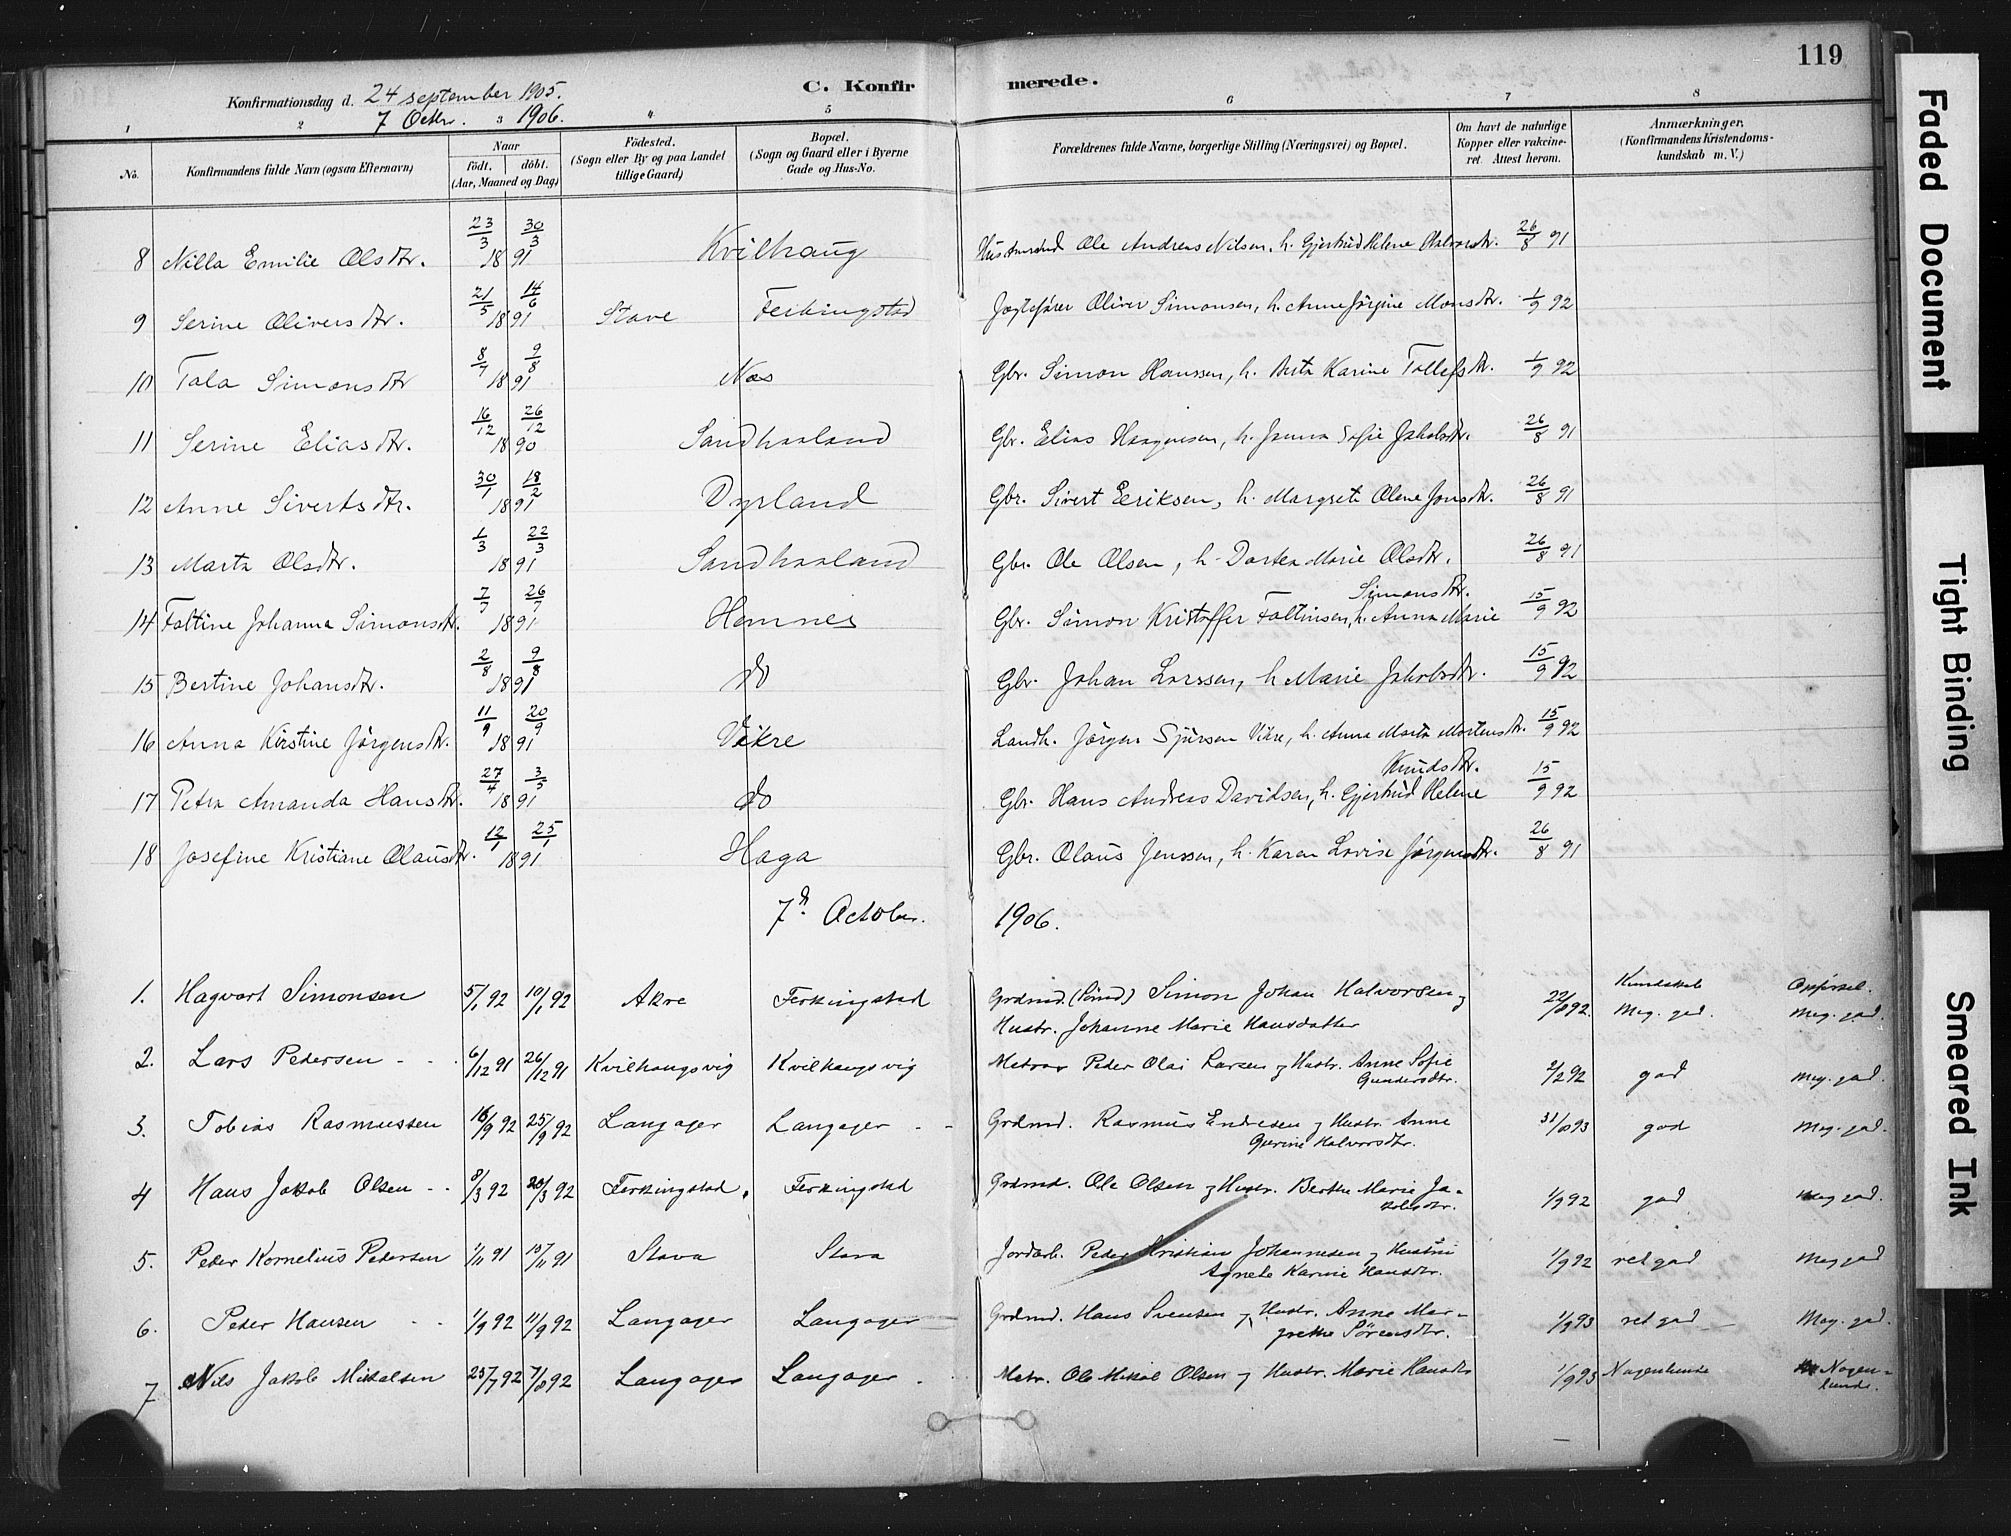 119
C. Konfirmerede.
Konfirmationsdag d. 24 september 1905.
7 Octbr. 1906.
1 2 3 4 5 6 7 8
No. Konfirmandens fulde Navn (ogsaa Efternavn) Naar födt. döbt. (Aar, Maaned og Dag) Födested. (Sogn eller By og paa Landet tillige Gaard) Bopæl. (Sogn og Gaard eller i Byerne Gade og Hus-No. Forældrenes fulde Navne, borgerlige Stilling (Næringsvei) og Bopæl. Om havt de naturlige Kopper eller vakcineret. Attest herom. Anmærkninger, (Konfirmandens Kristendomskundskab m. V.)
8 Nilla Emilie Olsdtr. 23/3 1891 30/3 Kvilhaug Husmand Ole Andreas Nilsen, h. Gjertrud Helene 26/8 91
9 Serine Oliversdtr. 21/5 1891 14/6 Stave Ferkingstad Jægtefører Oliver Simonsen, h. Anne Jörgine Monsdtr. 1/9 92
10 Tala Simonsdtr 8/7 1891 9/8 Nes Gbr. Simon Hanssen, h. Berta Karine Tollefsdtr. 1/9 92
11 Serine Eliasdtr. 16/12 1890 26/12 Sandhaaland Gbr. Elias Haagensen, h. Janna Sofie Jakobsdtr. 26/8 91
12 Anne Sivertsdtr. 30/1 1891 18/2 Dyrland Gbr. Sivert Eeriksen, h. Margrete Olene Jonsdtr. 26/8 91
13 Marta Olsdtr. 1/3 1891 22/3 Sandhaaland Gbr. Ole Olsen, h. Dortea Marie Olsdtr. 26/8 91
14 Faltine Johanna Simonsdtr. 7/7 1891 26/7 Hemnes Gbr. Simon Kristoffer Faltinsen, h. Anna Marie Simonsdtr. 15/9 92
15 Bertine Johansdtr. 2/8 1891 9/8 do Gbr. Johan Larssen, h. Marie Jakobsdtr. 15/9 92
16 Anna Kirstine Jörgensdtr. 11/9 1891 20/9 Vikre Landh. Jörgen Sjursen Vikre, h. Anna Marta Mortensdtr. 15/9 92
17 Petra Amanda Hansdtr. 27/4 1891 3/5 do Gbr. Hans Andreas Davidsen, h. Gjertrud Helene Knudsdtr. 15/9 92
18 Josefine Kristiane Olausdtr. 12/1 1891 25/1 Haga Gbr. Olaus Jenssen, h. Karen Lovise Jörgensdtr. 26/8 91
7de October. 1906.
1. Hagvart Simonsen 5/1 92 10/1 92 Akre Ferkingstad Grdmd. Simon Johan Halvorsen og Hustr. Johanne Marie Hansdatter 22/8 92. Kundskab Meg. god. Opførsel. Meg. god.
2. Lars Pedersen 6/12 91 26/12 91 Kvilhaugsvig Kvilhaugsvig Matros Peder Olai Larsen og Hustr. Anne Sofie Gundersdtr. 2/2 92 god Meg. god.
3. Tobias Rasmussen 16/9 92 25/9 92 Langager Langager Grdmd. Rasmus Endresen og Hustr. Anne Gurine Halvorsdtr. 31/8 93 god Meg. god.
4 Hans Jakob Olsen 8/3 92 20/3 92 Ferkingstad. Ferkingstad Grdmd. Ole Olsen og Hustr. Berthe Marie Jakobsdtr. 1/9 92 god Meg god.
5. Peder Kornelius Pedersen 1/11 91 15/11 91 Stava Stava Jordarb. Peder Kristian Johannesen og Hustru Agnete Karine Hansdtr. 1/9 92 ret god Meg god
6. Peder Hansen 1/9 92 11/9 92 Langager Langager Grdmd. Hans Svensen og Hustr. Anne Margrethe Sörensdtr. 1/9 93 ret god Meg. god.
7 Nils Jakob Mikalsen 25/7 92 7/8 92 Langager Langager Matr. Ole Mikal Olsen og Hustr. Marie Hansdtr 1/9 93 Nogenlunde Nogenlunde.
Faded Document
Tight Binding
Smeared Ink